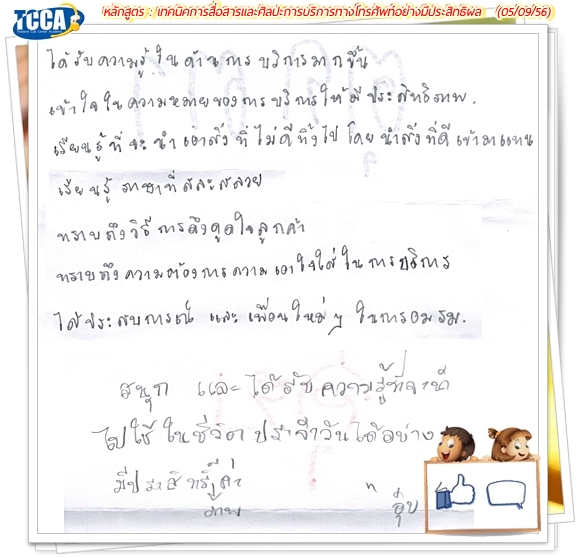 TCCA
Thailand Call Center Academy
หลักสูตร : เทคนิคการสื่อสารและศิลปะการบริการทางโทรศัพท์อย่างมีประสิทธิผล (05/09/56)
ได้รับความรู้ในด้านการบริการมากขึ้น
เข้าใจในความหมายของการบริการให้มีประสิทธิภาพ.
เรียนรู้ที่จะนำเอาสิ่งที่ไม่ดีทิ้งไป โดยนำสิ่งที่ดีเข้ามาแทน
เรียนรู้ภาษาที่สละสลวย
ทราบถึงวิธีการดึงดูดใจลูกค้า
ทราบถึงความต้องการความเอาใจใส่ในการบริการ
ได้ประสบการณ์ และเพื่อนใหม่ๆ ในการอบรม.
สนุก และได้รับความรู้ที่จะนำ
ไปใช้ในชีวิตประจำวันได้อย่าง
มีประสิทธิภาพค่ะ